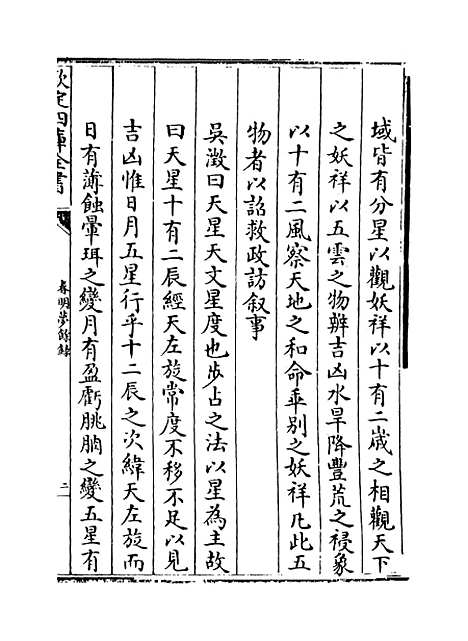 域皆有分星以觀妖祥以十有二歲之相觀天下
之妖祥以五雲之物辨吉凶水旱降豐荒之祲象
以十有二風察天地之和命乖别之妖祥凡此五
物者以詔救政訪叙事
吳澂曰天星天文星度也步占之法以星為主故
曰天星十有二辰經天左旋常度不移不足以見
吉凶惟日月五星行乎十二辰之次緯天左旋而
日有薄蝕暈珥之變月有盈虧朓朒之變五星有
欽定四庫全書
春明夢餘錄
二